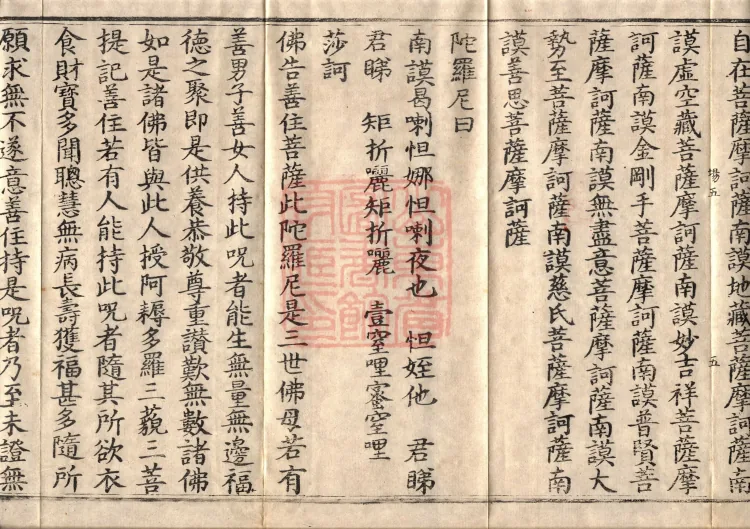 自在菩薩摩訶薩南謨地藏菩薩摩訶薩南
謨虛空藏菩薩摩訶薩南謨妙吉祥菩薩摩
訶薩南謨金剛手菩薩摩訶薩南謨普賢菩
薩摩訶薩南謨無盡意菩薩摩訶薩南謨大
勢至菩薩摩訶薩南謨慈氏菩薩摩訶薩南
謨善思菩薩摩訶薩
陀羅尼曰
南謨曷喇怛娜怛喇夜也 怛姪他 君睇
君睇 矩折囇矩折囇 壹窒哩蜜窒哩
莎訶
佛告善住菩薩此陀羅尼是三世佛母若有
善男子善女人持此呪者能生無量無邊福
德之聚即是供養恭敬尊重讚歎無數諸佛
如是諸佛皆與此人授阿耨多羅三藐三菩
提記善住若有人能持此呪者隨其所欲衣
食財寶多聞聰慧無病長壽獲福甚多隨所
願求無不遂意善住持是呪者乃至未證無
五